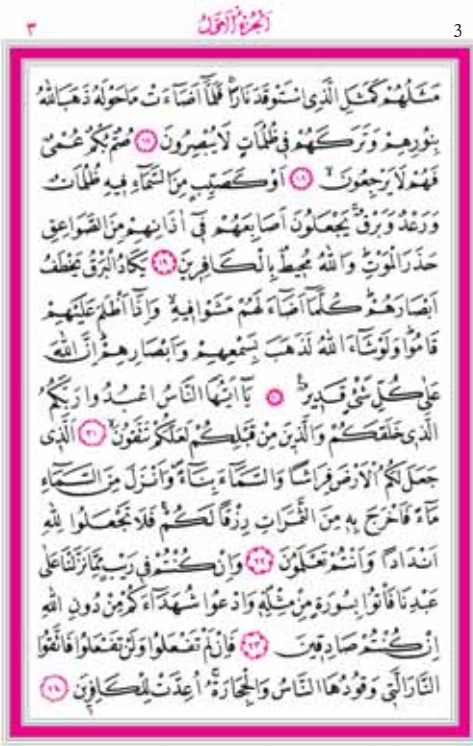 ٣ اَلْجُزْءُ الْاَوَّلُ 3
مَثَلُهُمْ كَمَثَلِ الَّذِى اسْتَوْقَدَ نَارًاۚ فَلَمَّٓا اَضَٓاءَتْ مَا حَوْلَهُ ذَهَبَ اللّٰهُ
بِنُورِهِمْ وَتَرَكَهُمْ فِى ظُلُمَاتٍ لَا يُبْصِرُونَ ﴿١٧﴾ صُمٌّ بُكْمٌ عُمْىٌ
فَهُمْ لَا يَرْجِعُونَۙ ﴿١٨﴾ اَوْ كَصَيِّبٍ مِنَ السَّمَٓاءِ فِيهِ ظُلُمَاتٌ
وَرَعْدٌ وَبَرْقٌۚ يَجْعَلُونَ اَصَابِعَهُمْ فِٓى اٰذَانِهِمْ مِنَ الصَّوَاعِقِ
حَذَرَ الْمَوْتِۜ وَاللّٰهُ مُحِيطٌ بِالْكَافِرِينَ ﴿١٩﴾ يَكَادُ الْبَرْقُ يَخْطَفُ
اَبْصَارَهُمْۜ كُلَّمَٓا اَضَٓاءَ لَهُمْ مَشَوْا فِيهِۙ وَاِذَٓا اَظْلَمَ عَلَيْهِمْ
قَامُواۜ وَلَوْ شَٓاءَ اللّٰهُ لَذَهَبَ بِسَمْعِهِمْ وَاَبْصَارِهِمْۜ اِنَّ اللّٰهَ
عَلٰى كُلِّ شَىْءٍ قَدِيرٌ۟ ﴿٢٠﴾ يَٓا اَيُّهَا النَّاسُ اعْبُدُوا رَبَّكُمُ
الَّذِى خَلَقَكُمْ وَالَّذِينَ مِنْ قَبْلِكُمْ لَعَلَّكُمْ تَتَّقُونَۙ ﴿٢١﴾ اَلَّذِى
جَعَلَ لَكُمُ الْاَرْضَ فِرَاشًا وَالسَّمَٓاءَ بِنَٓاءًۖ وَاَنْزَلَ مِنَ السَّمَٓاءِ
مَٓاءً فَاَخْرَجَ بِهِ مِنَ الثَّمَرَاتِ رِزْقًا لَكُمْۚ فَلَا تَجْعَلُوا لِلّٰهِ
اَنْدَادًا وَاَنْتُمْ تَعْلَمُونَ ﴿٢٢﴾ وَاِنْ كُنْتُمْ فِى رَيْبٍ مِمَّا نَزَّلْنَا عَلٰى
عَبْدِنَا فَأْتُوا بِسُورَةٍ مِنْ مِثْلِهِۖ وَادْعُوا شُهَدَٓاءَكُمْ مِنْ دُونِ اللّٰهِ
اِنْ كُنْتُمْ صَادِقِينَ ﴿٢٣﴾ فَاِنْ لَمْ تَفْعَلُوا وَلَنْ تَفْعَلُوا فَاتَّقُوا
النَّارَ الَّتِى وَقُودُهَا النَّاسُ وَالْحِجَارَةُۚ اُعِدَّتْ لِلْكَافِرِينَ ﴿٢٤﴾